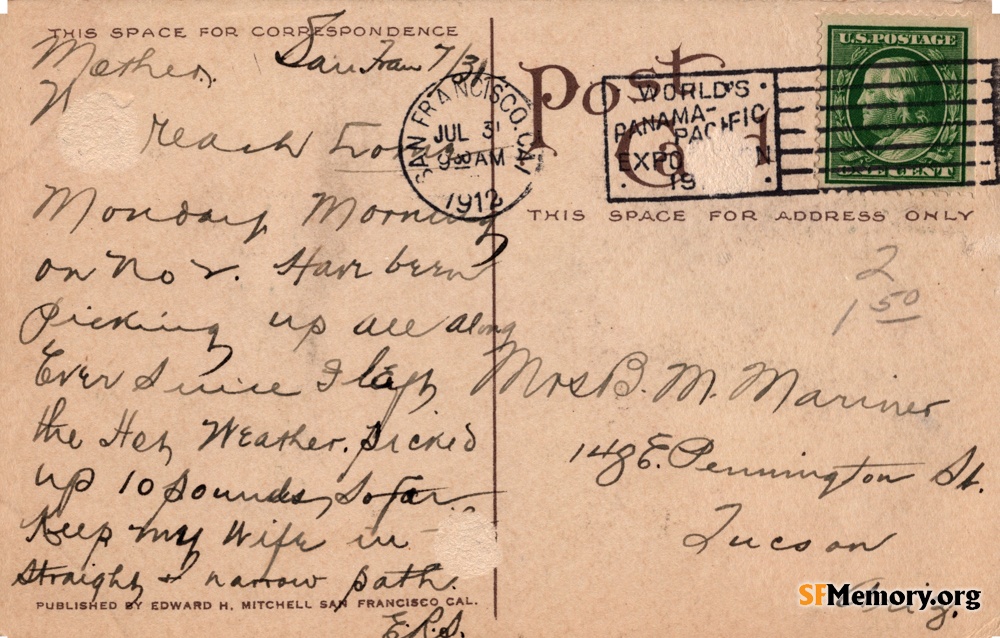 THIS SPACE FOR CORRESPONDENCE
San Fran 7/31
Mother,
reach
Monday Morning
on No 2. Have been
Picking up all along
Ever Since I left
the Hot Weather. Picked
up 10 pounds, So far
Keep my Wife in
Straight & narrow path.
E.R.S.
PUBLISHED BY EDWARD H. MITCHELL SAN FRANCISCO, CAL.
Post
Card
SAN FRANCISCO, CAL
JUL 31
9 30 AM
1912
WORLD'S
PANAMA-
PACIFIC
EXPO N
19
U.S. POSTAGE
ONE CENT
THIS SPACE FOR ADDRESS ONLY
2
1 50
Mrs B. M. Mariner
148 E. Pennington St.
Tucson
Ariz.
SFMemory.org